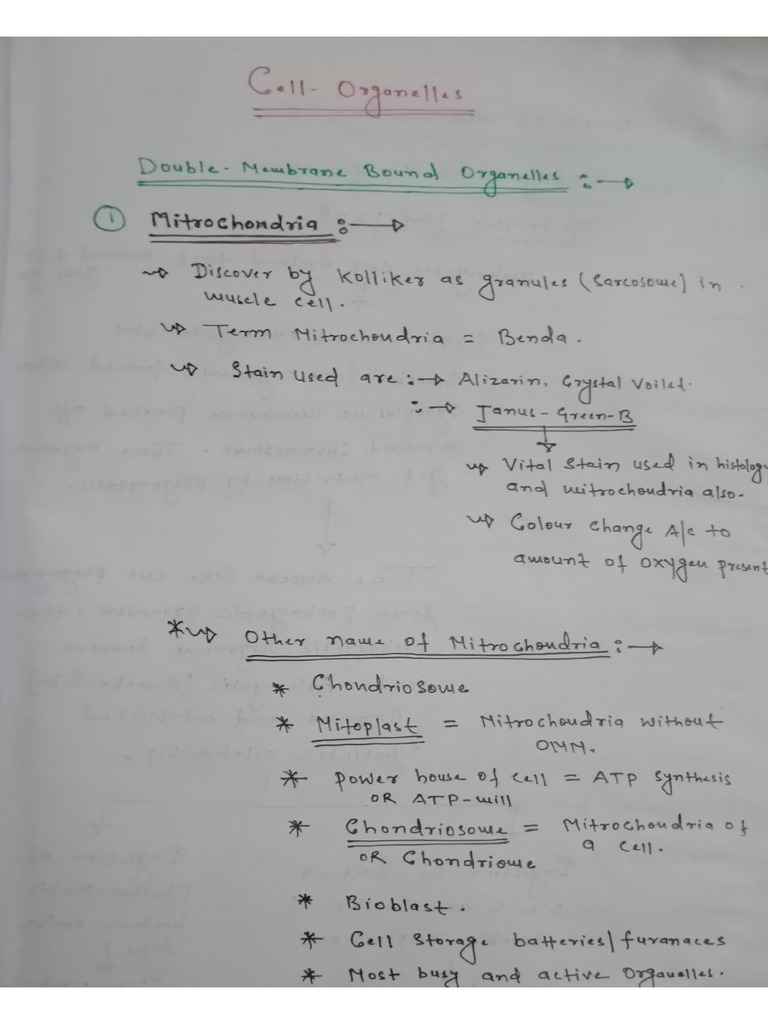 Cell- Organelles
Double-Membrane Bound Organelles :→
① Mitrochondria :→
Discover by Kolliker as granules (Sarcosome) in
muscle cell.
Term Mitrochondria = Benda.
Stain used are :→ Alizarin, Crystal Voilet.
:→ Janus-Green-B
Vital Stain used in histology
and mitrochondria also.
Colour change A/c to
amount of oxygen present
* Other name of Mitrochondria :→
* Chondriosome
* Mitoplast = Mitrochondria without
OMM.
* Power house of cell = ATP Synthesis
OR ATP-will
* Chondriosome = Mitrochondria of
a cell.
OR Chondriome
* Bioblast.
* Cell Storage batteries/furanaces
* Most busy and active Organelles.